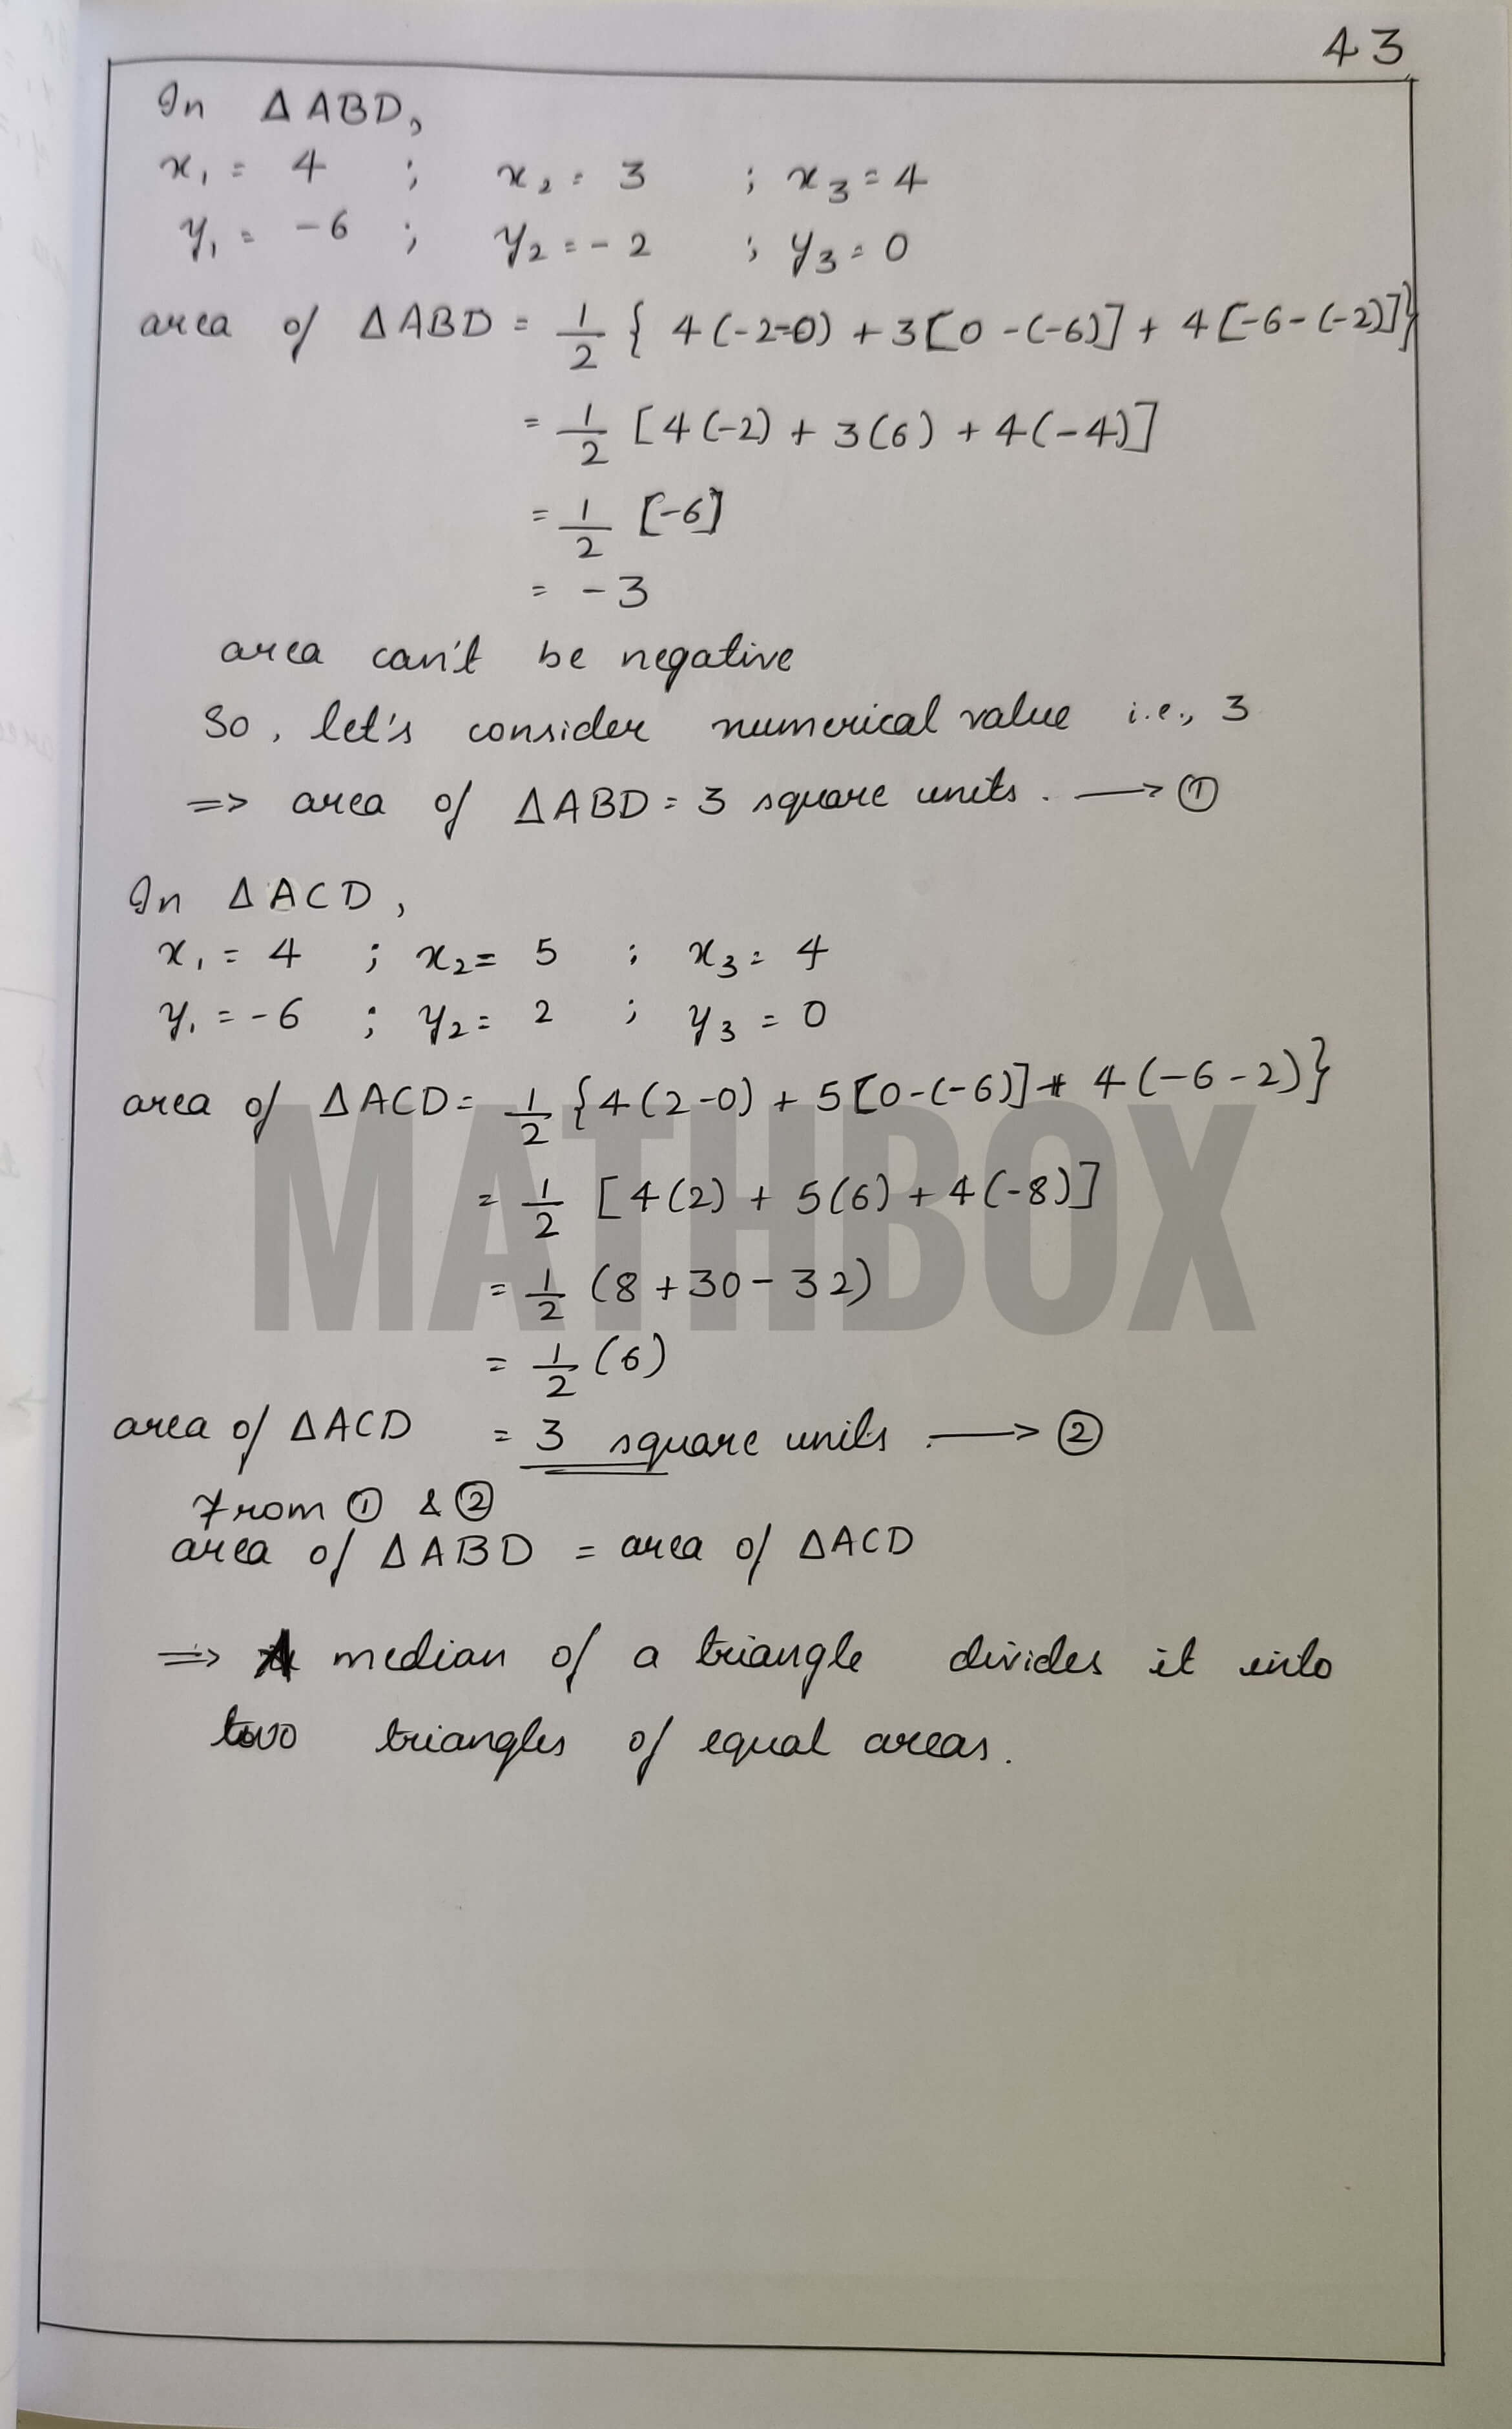 43
In ΔABD,
x₁ = 4 ; x₂ = 3 ; x₃ = 4
y₁ = -6 ; y₂ = -2 ; y₃ = 0
area of ΔABD = 1/2 { 4(-2-0) + 3[0-(-6)] + 4[-6-(-2)]}
= 1/2 [4(-2) + 3(6) + 4(-4)]
= 1/2 [-6]
= -3
area can't be negative
So, let's consider numerical value i.e., 3
=> area of ΔABD = 3 square units. → ①
In ΔACD,
x₁ = 4 ; x₂ = 5 ; x₃ = 4
y₁ = -6 ; y₂ = 2 ; y₃ = 0
area of ΔACD = 1/2 {4(2-0) + 5[0-(-6)] + 4(-6-2)}
MATHBOX
= 1/2 [4(2) + 5(6) + 4(-8)]
= 1/2 (8+30-32)
= 1/2 (6)
area of ΔACD = 3 square units. → ②
From ① & ②
area of ΔABD = area of ΔACD
=> A median of a triangle divides it into
two triangles of equal areas.